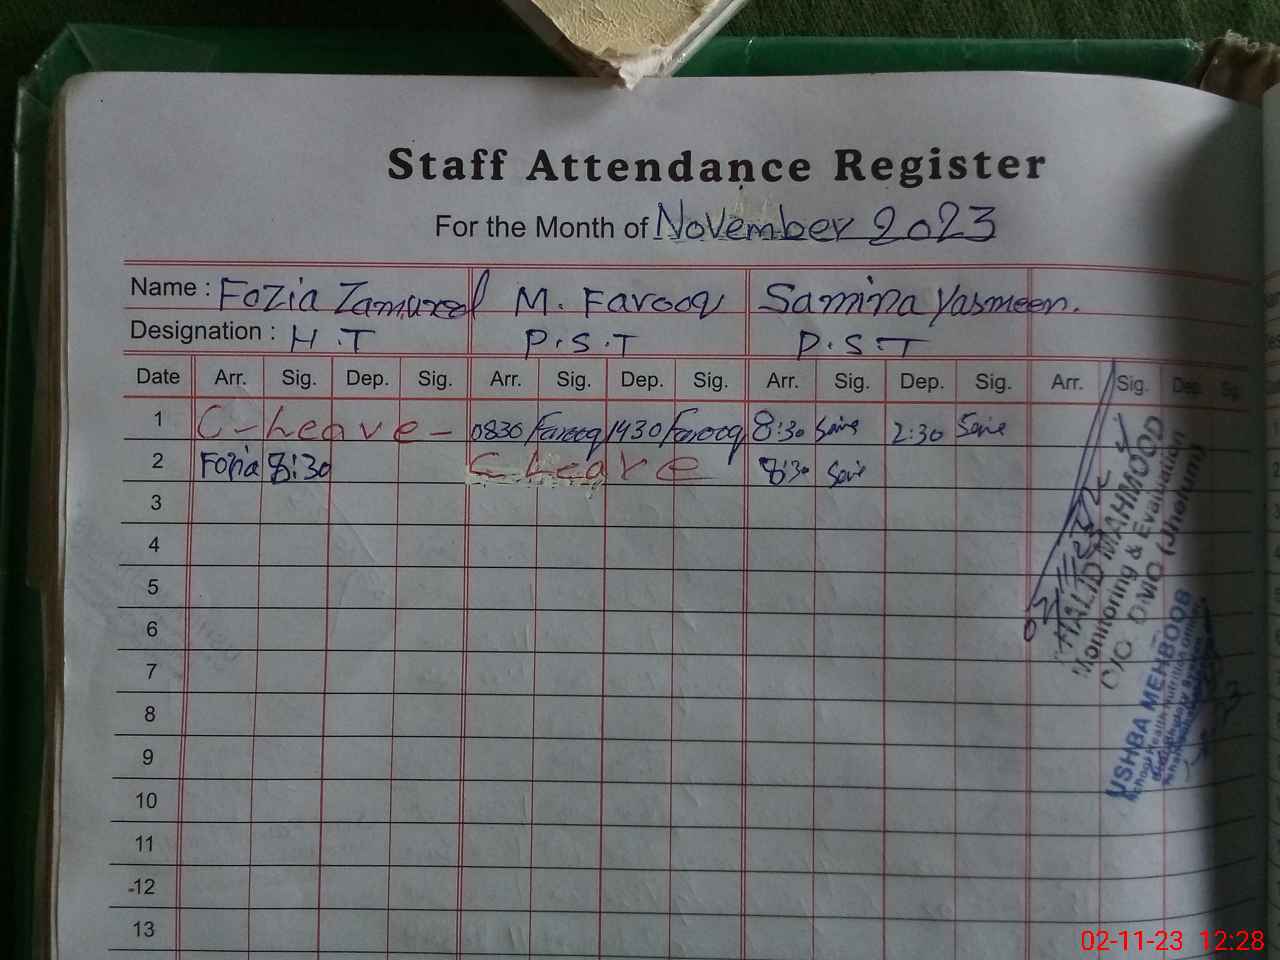 Staff Attendance Register
For the Month of November 2023
Name : Fozia Zamurod M. Farooq Samina Yasmeen.
Designation : H.T P.S.T P.S.T
Date Arr. Sig. Dep. Sig. Arr. Sig. Dep. Sig. Arr. Sig. Dep. Sig. Arr. Sig. Dep. Sig.
1 C-Leave- 0830 Farooq 1430 Farooq 8:30 2:30
2 Fozia 8:30 C Leave 8:30
3
4
5
6
7
8
9
10
11
-12
13
KHALID MAHMOOD
Monitoring & Evaluation
O/O DMO (Jhelum)
USHBA MEHBOOB
School Health & Nutrition
02-11-23 12:28